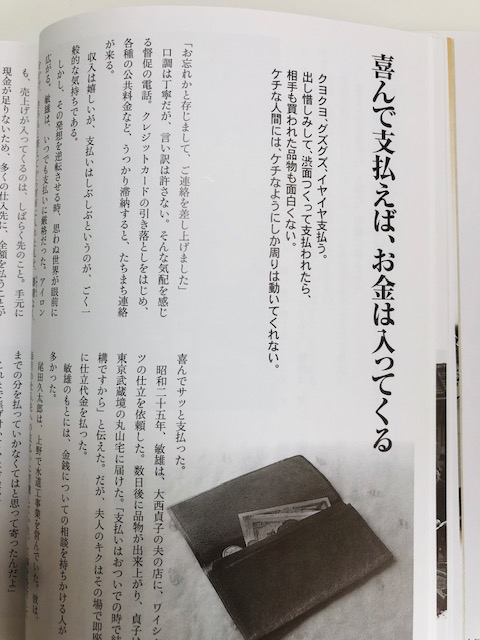 喜んで支払えば、お金は入ってくる
クヨクヨ、グズグズ、イヤイヤ支払う。
出し惜しみして、渋面つくって支払われたら、
相手も買われた品物も面白くない。
ケチな人間には、ケチなようにしか周りは動いてくれない。
「お忘れかと存じまして、ご連絡を差し上げました」
口調は丁寧だが、言い訳は許さない。そんな気配を感じ
る督促の電話。クレジットカードの引き落としをはじめ、
各種の公共料金など、うっかり滞納すると、たちまち連絡
が来る。
収入は嬉しいが、支払いはしぶしぶというのが、ごく一
般的な気持ちである。
しかし、その発想を逆転させる時、思わぬ世界が眼前に
広がる。敏雄は、いつでも支払いに厳格だった。アイロン
も、売上げが入ってくるのは、しばらく先のこと。手元に
現金が足りないため、多くの仕入先に、全額を払うことが
喜んでサッと支払った。
昭和二十五年、敏雄は、大西貞子の夫の店に、ワイシャ
ツの仕立を依頼した。数日後に品物が出来上がり、貞子は
東京武蔵境の丸山宅に届けた。「支払いはおついでの時で結
構ですから」と伝えた。だが、夫人のキクはその場で即座
に仕立代金を払った。
敏雄のもとには、金銭についての相談を持ちかける人が
多かった。
尾田久太郎は、上野で水道工事業を営んでいた。彼は、
までの分を払っていかなくてはと思って寄ったんだよ」